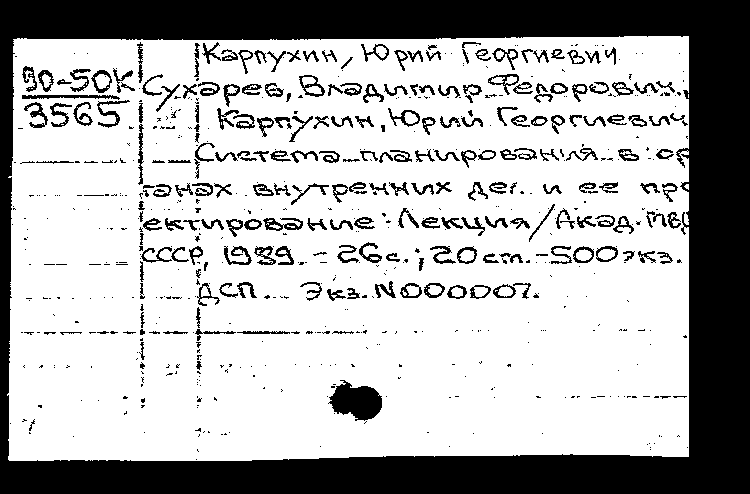 Карпухин, Юрий Георгиевич
90-50К Сухарев, Владимир Федорович.,
3565 Карпухин, Юрий Георгиевич
Система планирования в ор
ганах внутренних дел. и ее про
ектирование: Лекция/Акад. МВД
СССР, 1989. - 26с.; 20 ст. - 500 экз.
ДСП. Экз. N000007.